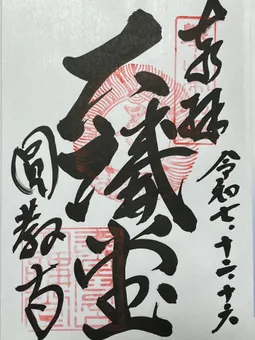 奉拝
令和七・十二・十六
大講堂
圓教寺